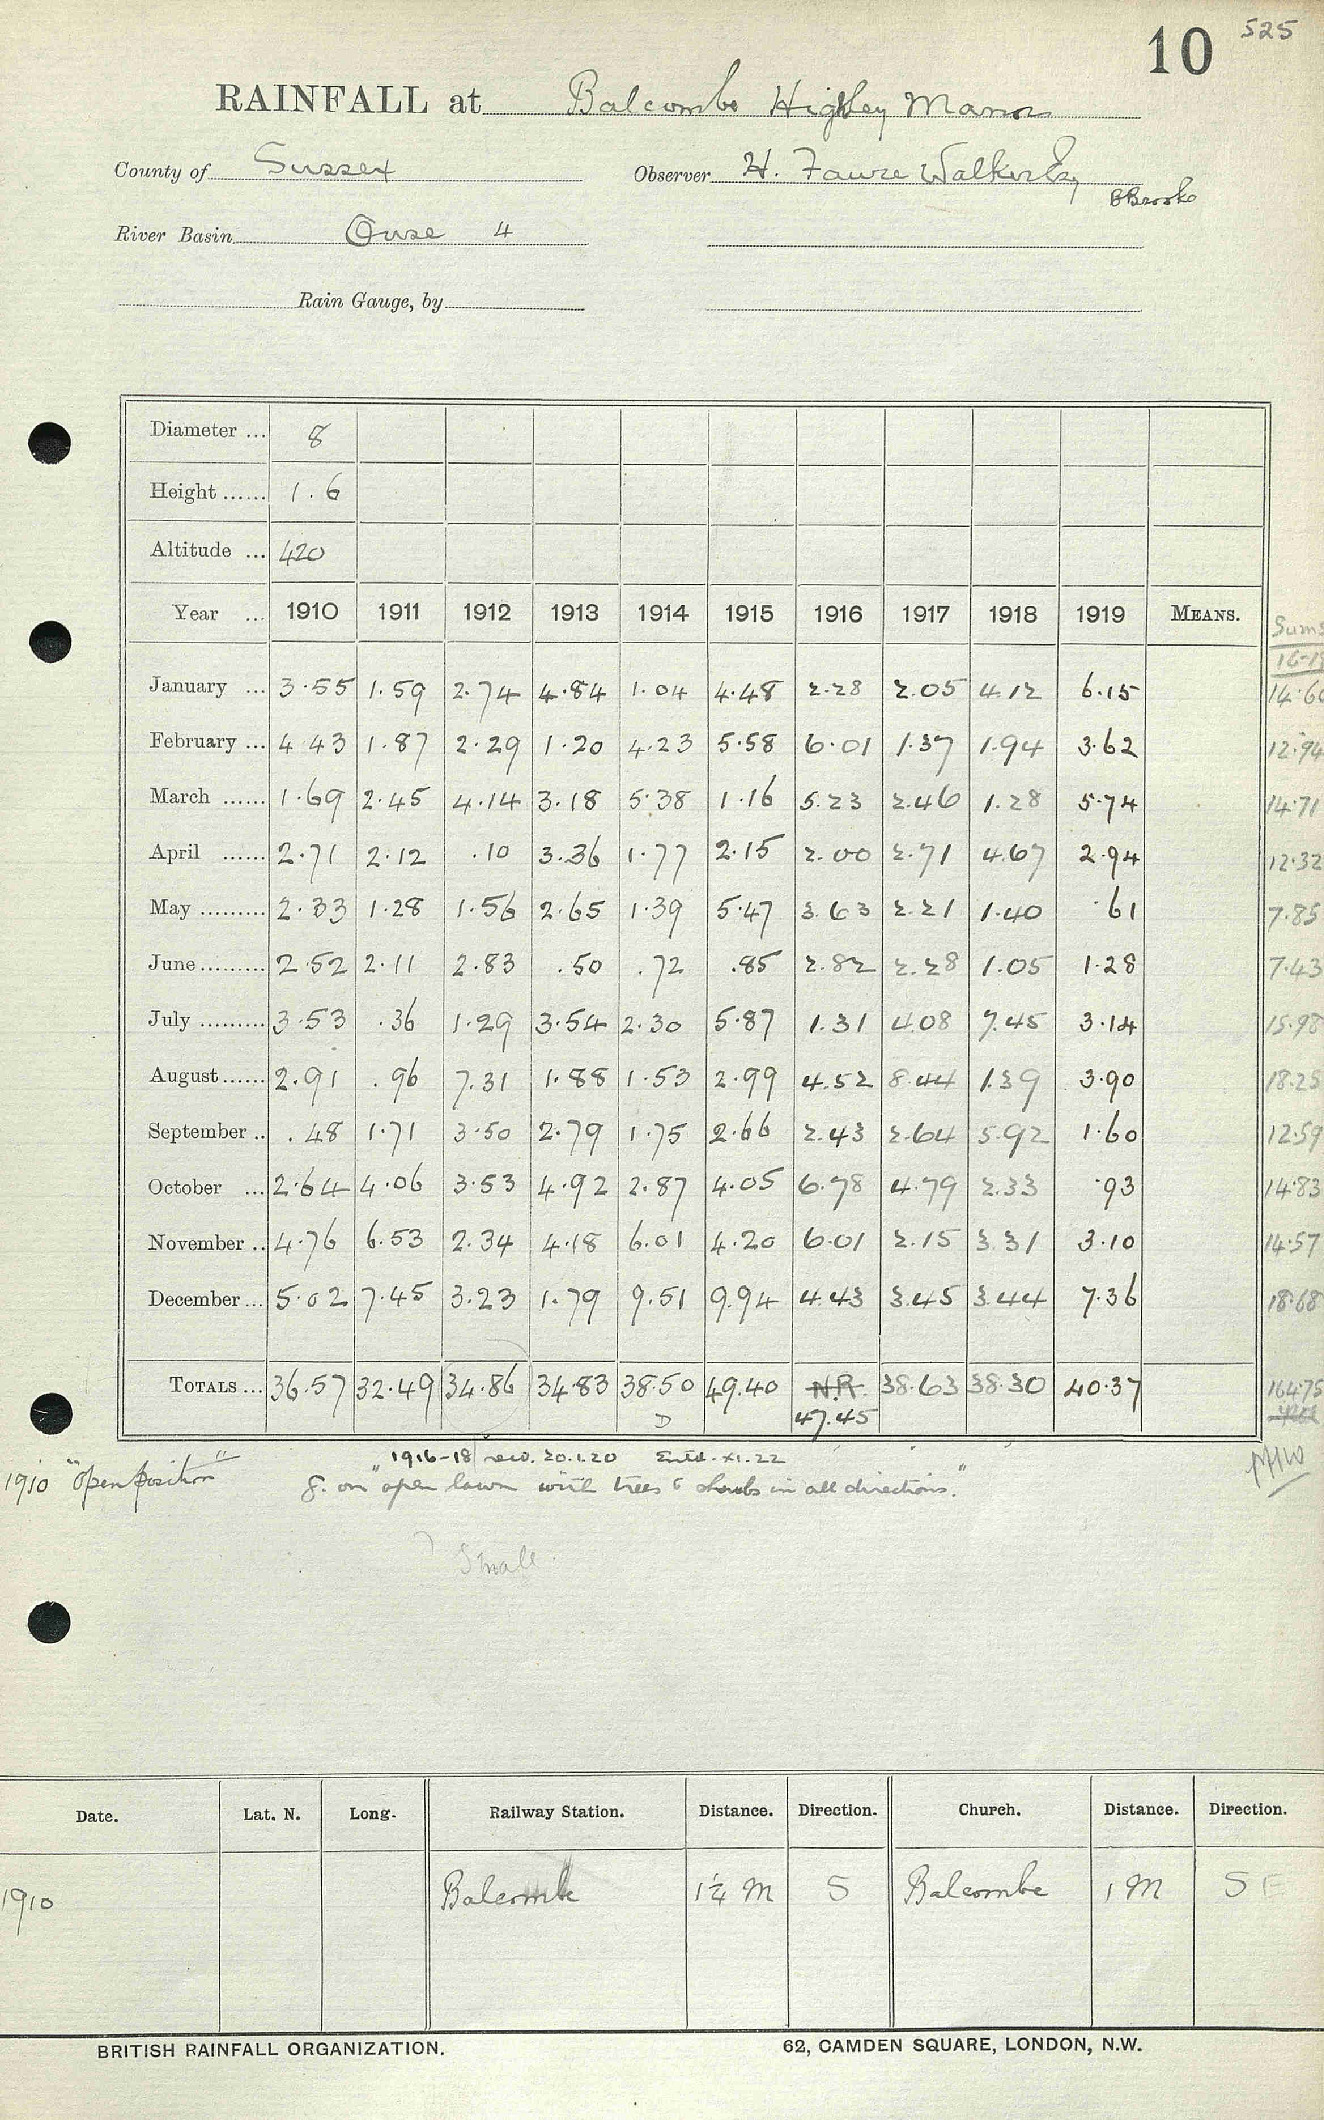 10 525
RAINFALL at Balcombe Highley Manor
County of Sussex Observer H. Faure Walker Esq
B Brooke
River Basin Ouse 4
Rain Gauge, by
Diameter ... 8
Height ...... 1.6
Altitude ... 420
Year ... 1910 1911 1912 1913 1914 1915 1916 1917 1918 1919 MEANS. Sums
16-19
January ... 3.55 1.59 2.74 4.84 1.04 4.48 2.28 2.05 4.12 6.15 14.60
February ... 4.43 1.87 2.29 1.20 4.23 5.58 6.01 1.37 1.94 3.62 12.94
March ...... 1.69 2.45 4.14 3.18 5.38 1.16 5.23 2.46 1.28 5.74 14.71
April ...... 2.71 2.12 .10 3.36 1.77 2.15 2.00 2.71 4.67 2.94 12.32
May ......... 2.33 1.28 1.56 2.65 1.39 5.47 3.63 2.21 1.40 .61 7.85
June ......... 2.52 2.11 2.83 .50 .72 .85 2.82 2.28 1.05 1.28 7.43
July ......... 3.53 .36 1.29 3.54 2.30 5.87 1.31 4.08 7.45 3.14 15.98
August ...... 2.91 .96 7.31 1.88 1.53 2.99 4.52 8.44 1.39 3.90 18.25
September .. .48 1.71 3.50 2.79 1.75 2.66 2.43 2.64 5.92 1.60 12.59
October ... 2.64 4.06 3.53 4.92 2.87 4.05 6.78 4.79 2.33 .93 14.83
November .. 4.76 6.53 2.34 4.18 6.01 4.20 6.01 2.15 3.31 3.10 14.57
December ... 5.02 7.45 3.23 1.79 9.51 9.94 4.43 3.45 3.44 7.36 18.68
TOTALS ... 36.57 32.49 34.86 34.83 38.50 49.40 N.R. 38.63 38.30 40.37 164.75
D 47.45
1916-18 recd. 20.1.20 Entd. XI.22
1910 "Open position" g. on "open lawn with trees & shrubs in all directions."
Small
Date. Lat. N. Long. Railway Station. Distance. Direction. Church. Distance. Direction.
1910 Balcombe 1¼ M S Balcombe 1 M SE
BRITISH RAINFALL ORGANIZATION. 62, CAMDEN SQUARE, LONDON, N.W.